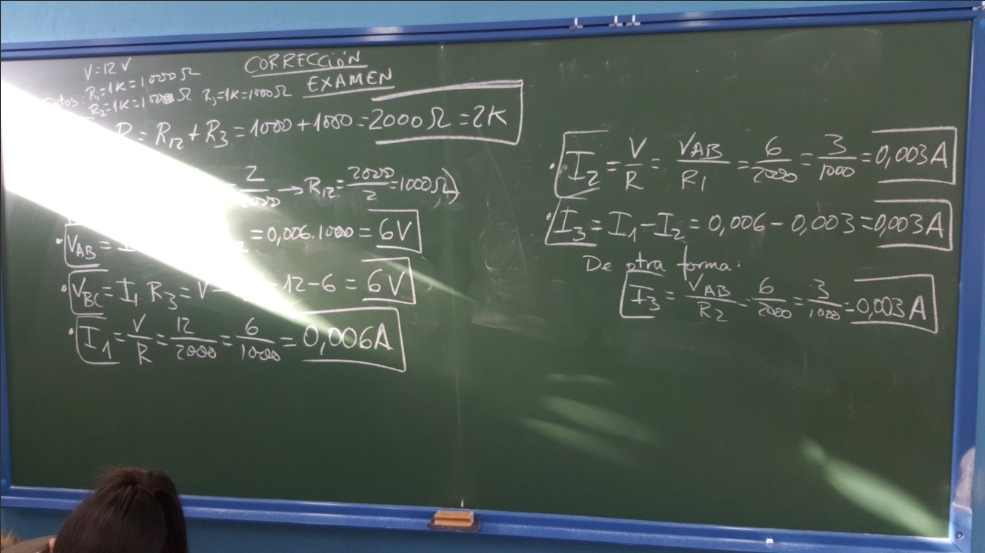 CORRECCIÓN
EXAMEN
V=12V
R₁=1K=1000Ω
R₂=1K=1000Ω R₃=1K=1000Ω
R=R₁₂+R₃=1000+1000=2000Ω=2K
2/2000→R₁₂=2000/2=1000Ω)
·V_AB= =0,006.1000=6V
·V_BC=I₁ R₃=V 12-6=6V
·I₁=V/R=12/2000=6/1000=0,006A
·I₂=V/R=V_AB/R₁=6/2000=3/1000=0,003A
·I₃=I₁-I₂=0,006-0,003=0,003A
De otra forma:
I₃=V_AB/R₂=6/2000=3/1000=0,003A